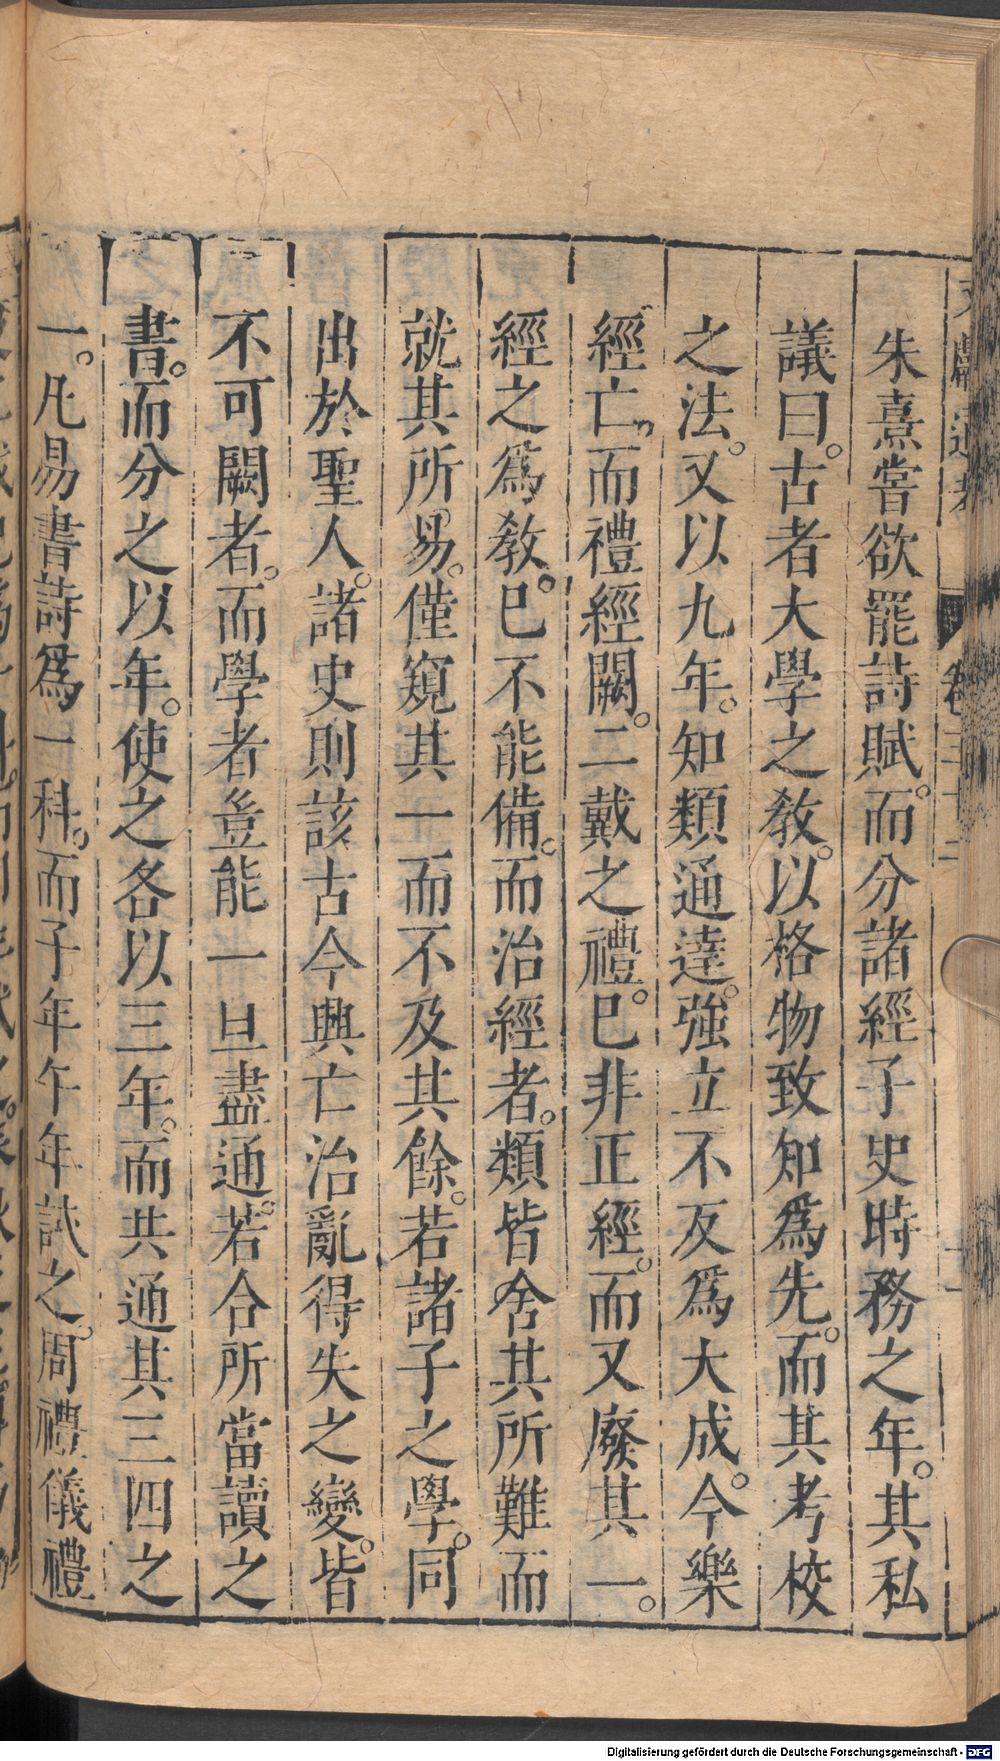 朱熹嘗欲罷詩賦。而分諸經子史時務之年。其私
議曰。古者大學之敎。以格物致知爲先。而其考校
之法。又以九年。知類通達。強立不反爲大成。今樂
經亡。而禮經闕。二戴之禮。已非正經。而又廢其一。
經之爲敎。已不能備。而治經者。類皆舍其所難而
就其所易。僅窺其一而不及其餘。若諸子之學。同
出於聖人。諸史則該古今興亡治亂得失之變。皆
不可闕者。而學者豈能一旦盡通。若合所當讀之
書。而分之以年。使之各以三年。而共通其三四之
一。凡易書詩爲一科。而子年午年試之。周禮儀禮
Digitalisierung gefördert durch die Deutsche Forschungsgemeinschaft - DFG